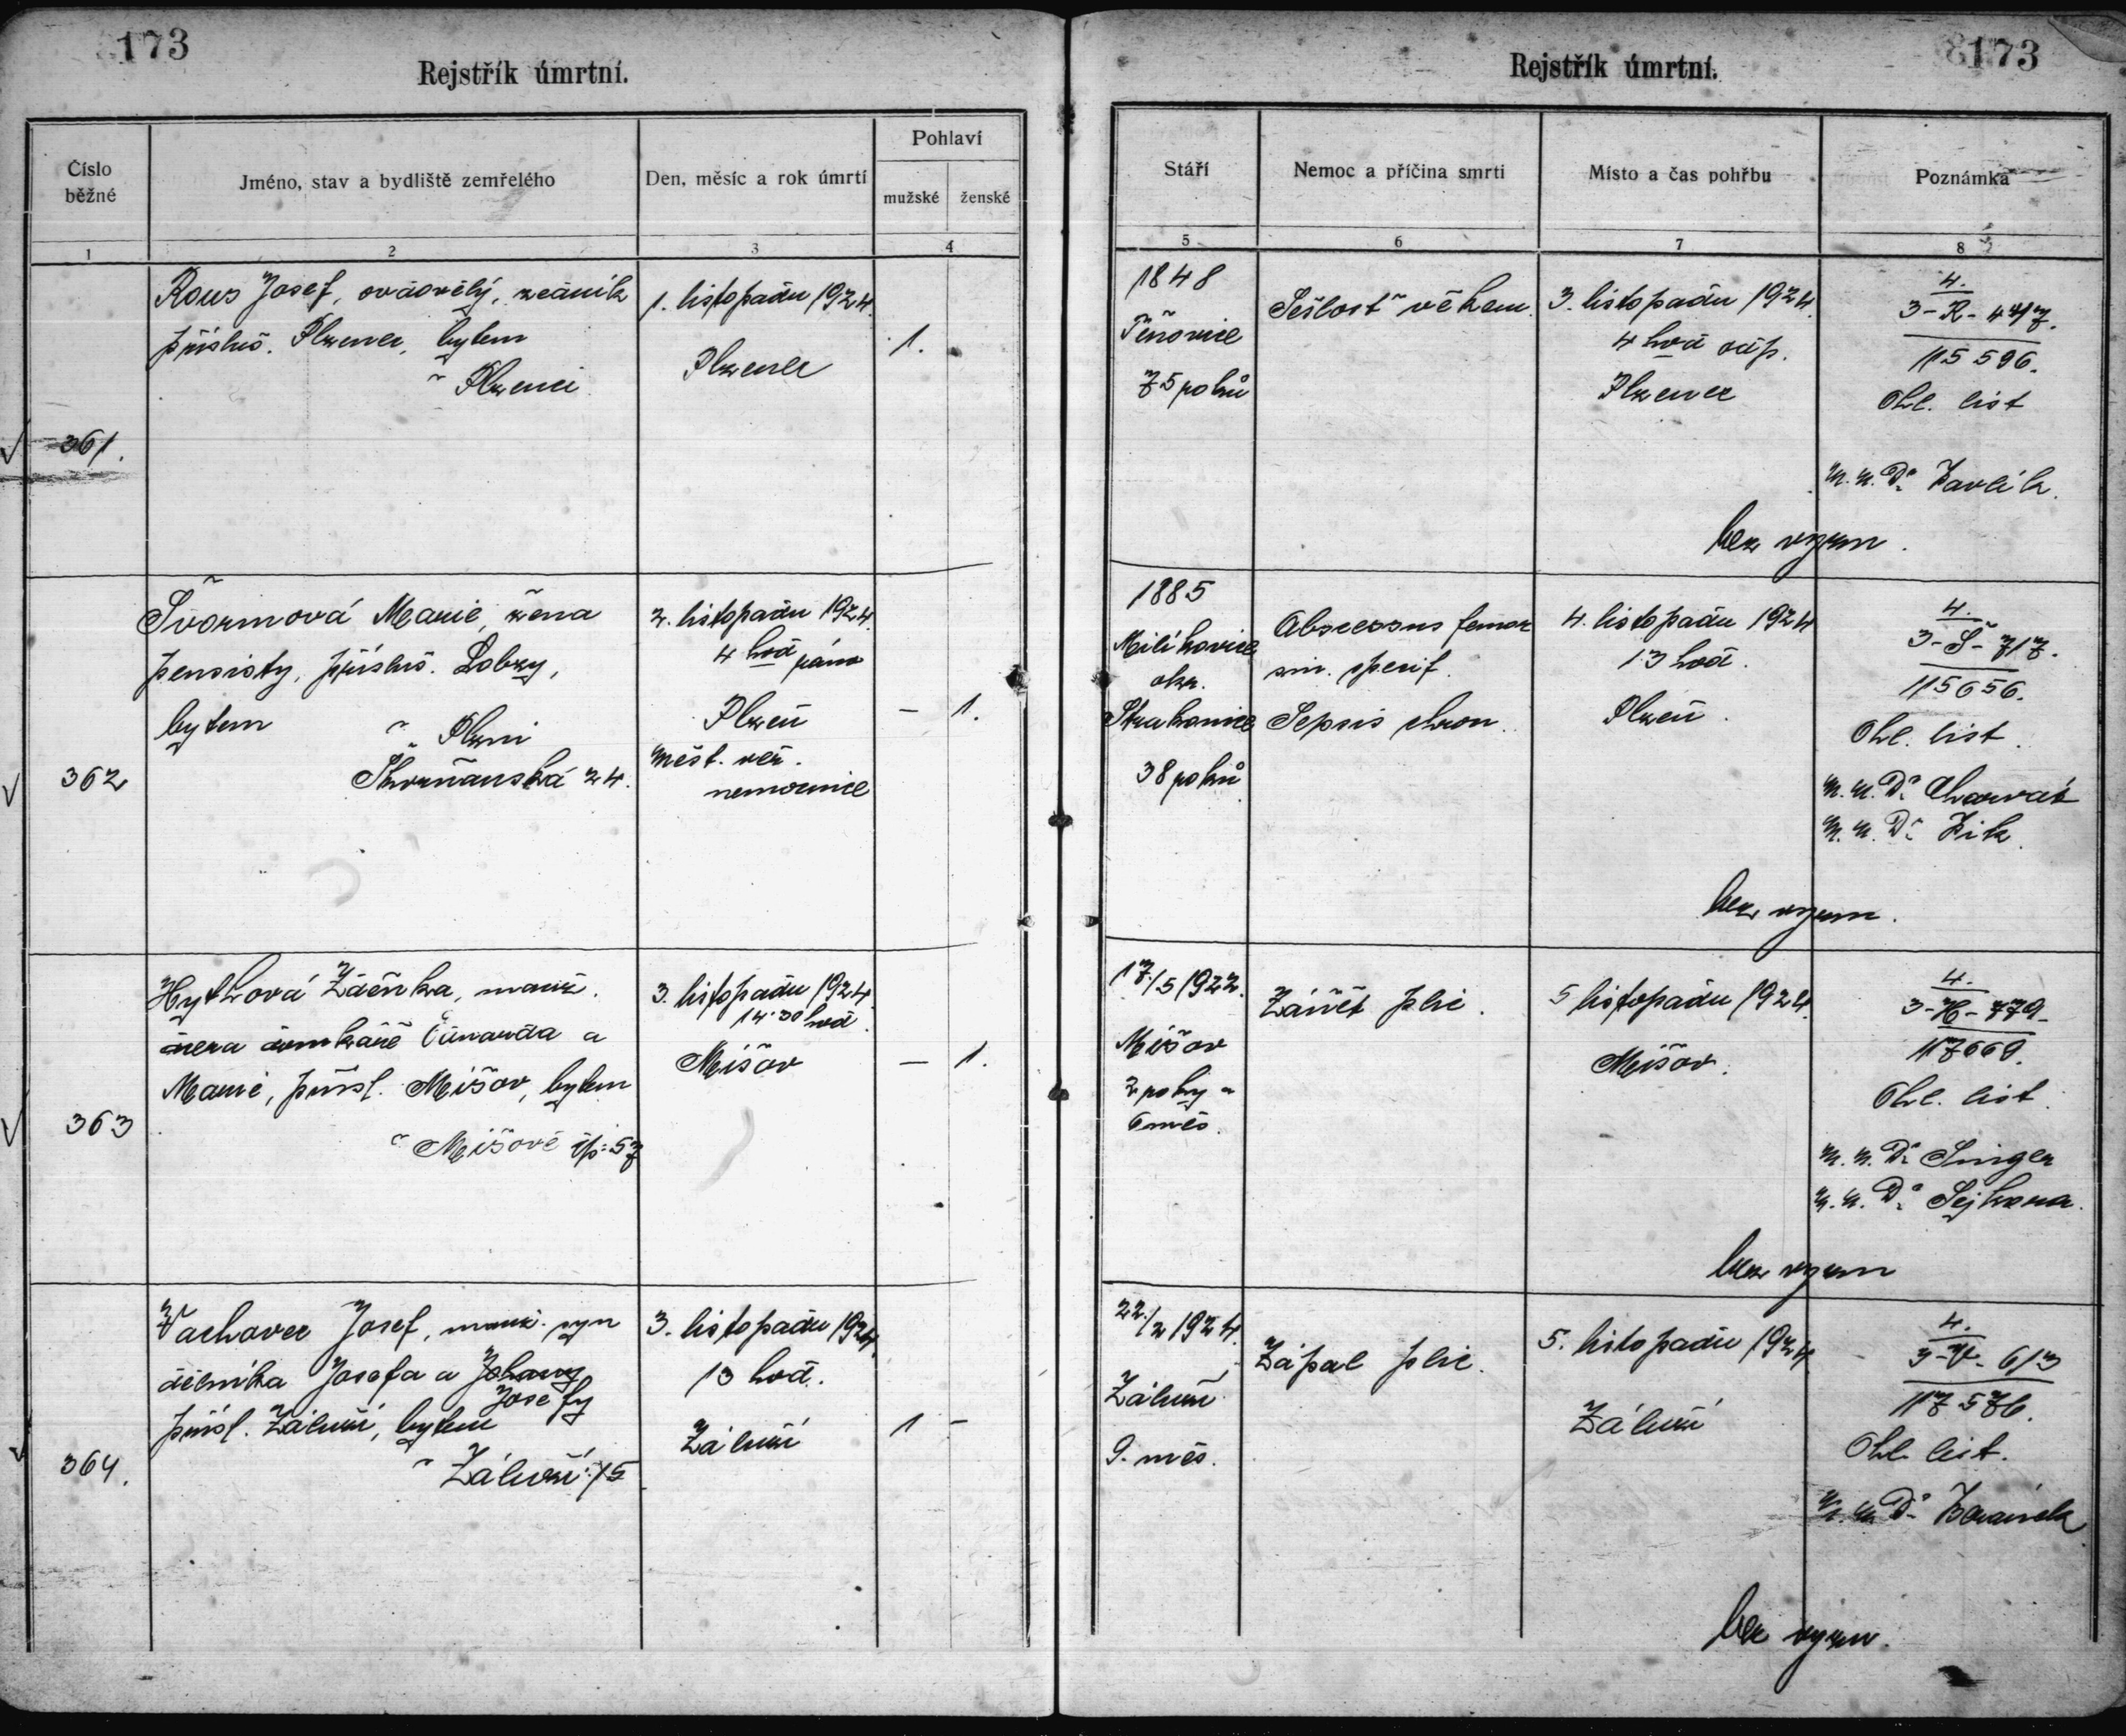 173
Rejstřík úmrtní.
Číslo běžné
Jméno, stav a bydliště zemřelého
Den, měsíc a rok úmrtí
Pohlaví
mužské
ženské
1
2
3
4
361.
Rous Josef, ovdovělý, zedník
přísluš. Plzenec, bytem
v Plzenci
1. listopadu 1924.
Plzenec
1.
362
Švormová Marie, žena
pensisty, přísluš. Lobzy,
bytem
v Plzni
Skvrňanská 24.
2. listopadu 1924.
4 hod ráno
Plzeň
měst. veř.
nemocnice
– 1.
363
Hytková Zdeňka, manž.
dcera domkáře Edvarda a
Marie, přísl. Míšov, bytem
v Míšově čp: 57
3. listopadu 1924.
14·30 hod.
Míšov
– 1.
364.
Vachovec Josef, manž. syn
dělníka Josefa a Johany
Josefy
přísl. Záluží, bytem
v Záluží: 15
3. listopadu 1924.
13 hod.
Záluží
1 –
173
Rejstřík úmrtní.
Stáří
Nemoc a příčina smrti
Místo a čas pohřbu
Poznámka
5
6
7
8
1848
Těnovice
75 roků
Sešlosť věkem.
3. listopadu 1924.
4 hod odp.
Plzenec
4.
3-R-447.
115596.
Ohl. list
M.U.Dr Pavlík.
bez vyzn.
1885
Milíkovice
okr.
Strakonice
38 roků
Abscessus femor
sin. specif.
Sepsis chron.
4. listopadu 1924
13 hod.
Plzeň.
4.
3-Š-717.
115656.
Ohl. list.
M.U.Dr Charvát
M.U.Dr Pik.
bez vyzn.
17/5 1922.
Míšov
2 roky a
6 měs.
Zánět plic.
5 listopadu 1924.
Míšov.
4.
3-H-779.
117669.
Ohl. list.
M.U.Dr Singer
M.U.Dr Sejkora.
bez vyzn
22./2 1924.
Záluží
9. měs.
Zápal plic.
5. listopadu 1924
Záluží
4.
3-V-613
117576.
Ohl. list.
M.U.Dr
bez vyzn.